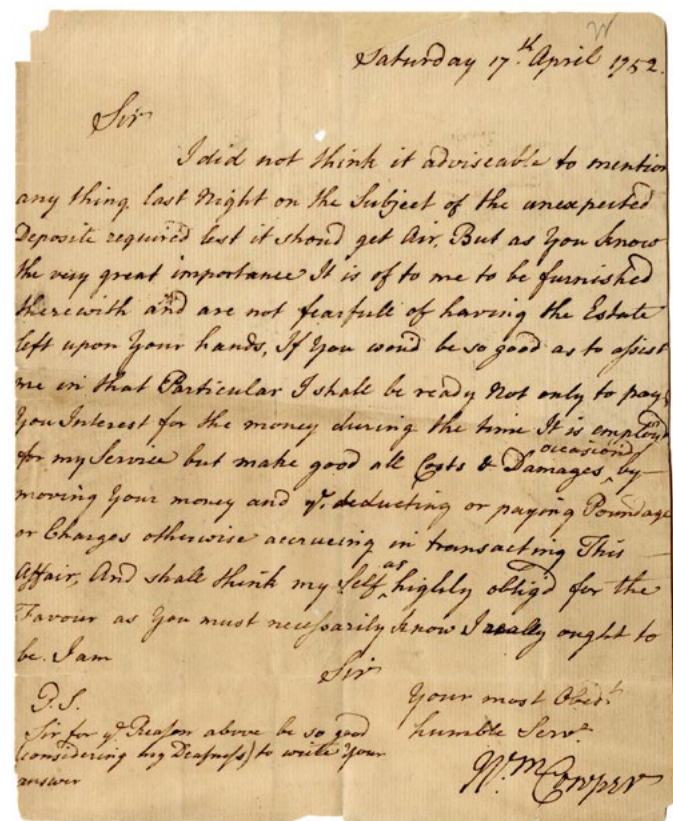 W
Saturday 17th April 1752.
Sir
I did not think it adviseable to mention
any thing last Night on the Subject of the unexpected
Deposite required lest it should get Air. But as you know
the very great importance It is of to me to be furnished
therewith and are not fearfull of having the Estate
left upon your hands, If you wou'd be so good as to assist
me in that Particular I shall be ready Not only to pay
you Interest for the money during the time It is employ'd
for my Service but make good all Costs & Damages ^ occasion'd by
moving your money and ye deducting or paying Poundage
or Charges otherwise accrueing in transacting This
Affair, And shall think my Self ^ as highly oblig'd for the
Favour as you must necessarily know I really ought to
be. I am
Sir
Your most Obedt
humble Servt
Wm Cowper
P.S.
Sir for ye Reason above be so good
(considering my Deafness) to write your
answer